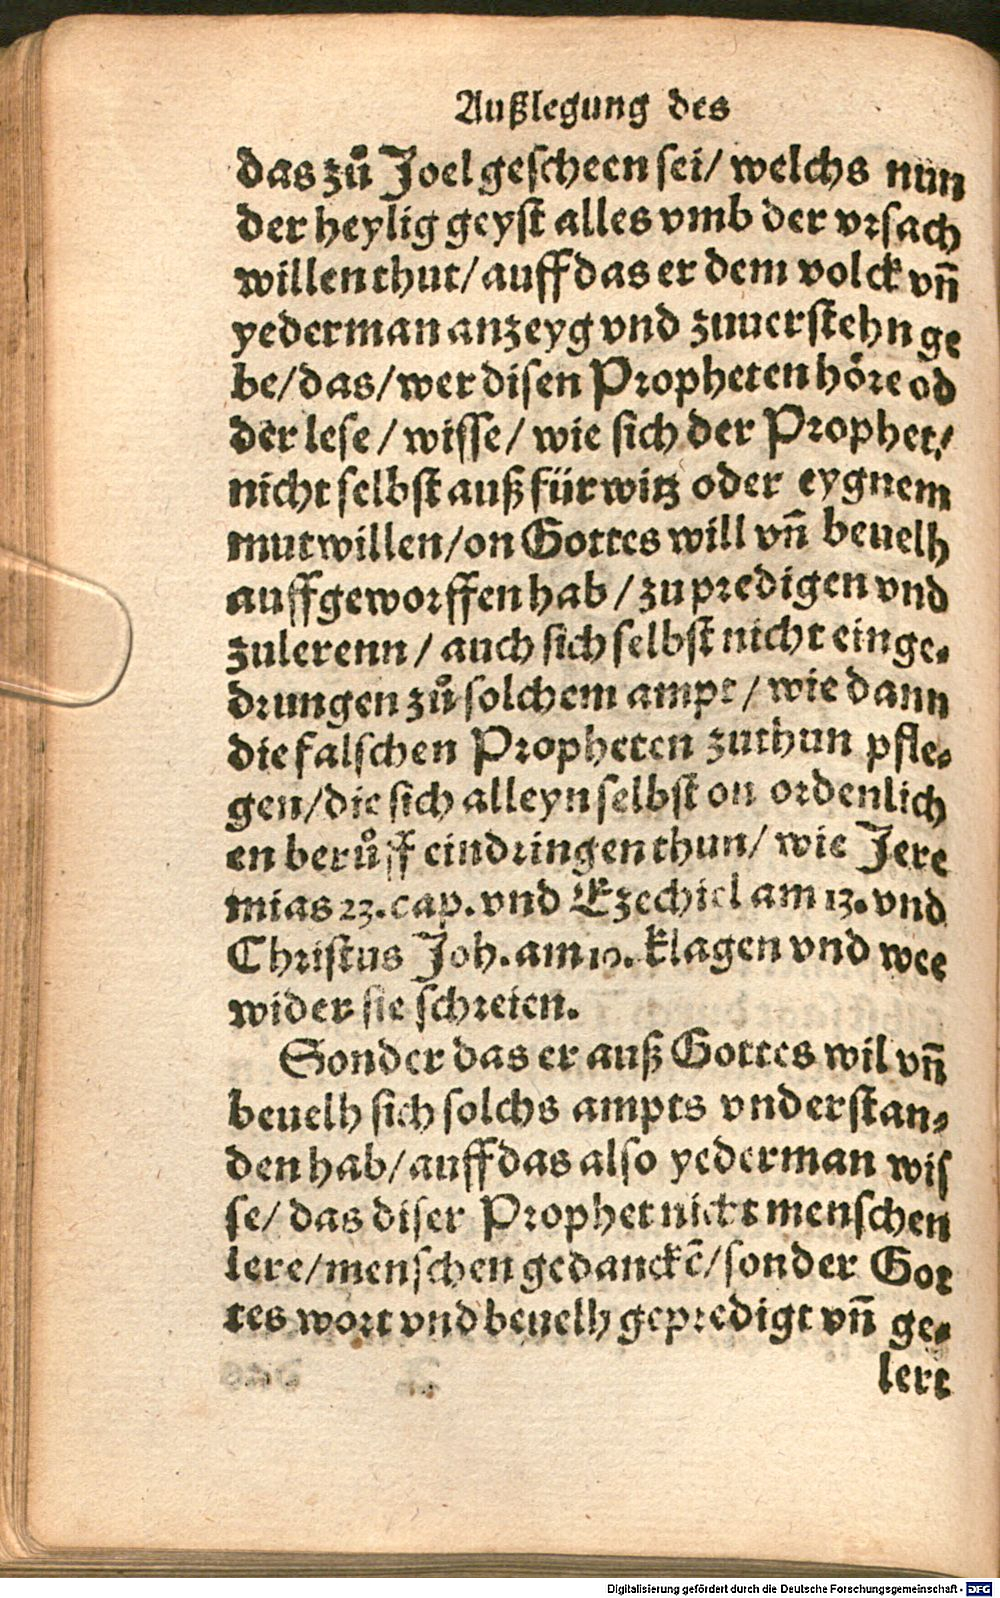 Außlegung des
das zuͦ Joel gescheen sei/ welchs nun
der heylig geyst alles vmb der vrsach
willen thut/ auff das er dem volck vñ
yederman anzeyg vnd zuuerstehn ge
be/ das/ wer disen Propheten höre od
der lese/ wisse/ wie sich der Prophet/
nicht selbst auß fürwitz oder eygnem
mutwillen/ on Gottes will vñ beuelh
auffgeworffen hab/ zu predigen vnd
zulerenn/ auch sich selbst nicht einge⸗
drungen zuͦ solchem ampt/ wie dann
die falschen Propheten zuthun pfle⸗
gen/ die sich alleyn selbst on ordenlich
en beruͦff eindringen thun/ wie Jere
mias 23. cap. vnd Ezechiel am 13. vnd
Christus Joh. am 10. klagen vnd wee
wider sie schreien.
Sonder das er auß Gottes wil vñ
beuelh sich solchs ampts vnderstan⸗
den hab/ auff das also yederman wis
se/ das diser Prophet nicht menschen
lere/ menschen gedanckē/ sonder Got
tes wort vnd beuelh gepredigt vñ ge⸗
lert
Digitalisierung gefördert durch die Deutsche Forschungsgemeinschaft - DFG